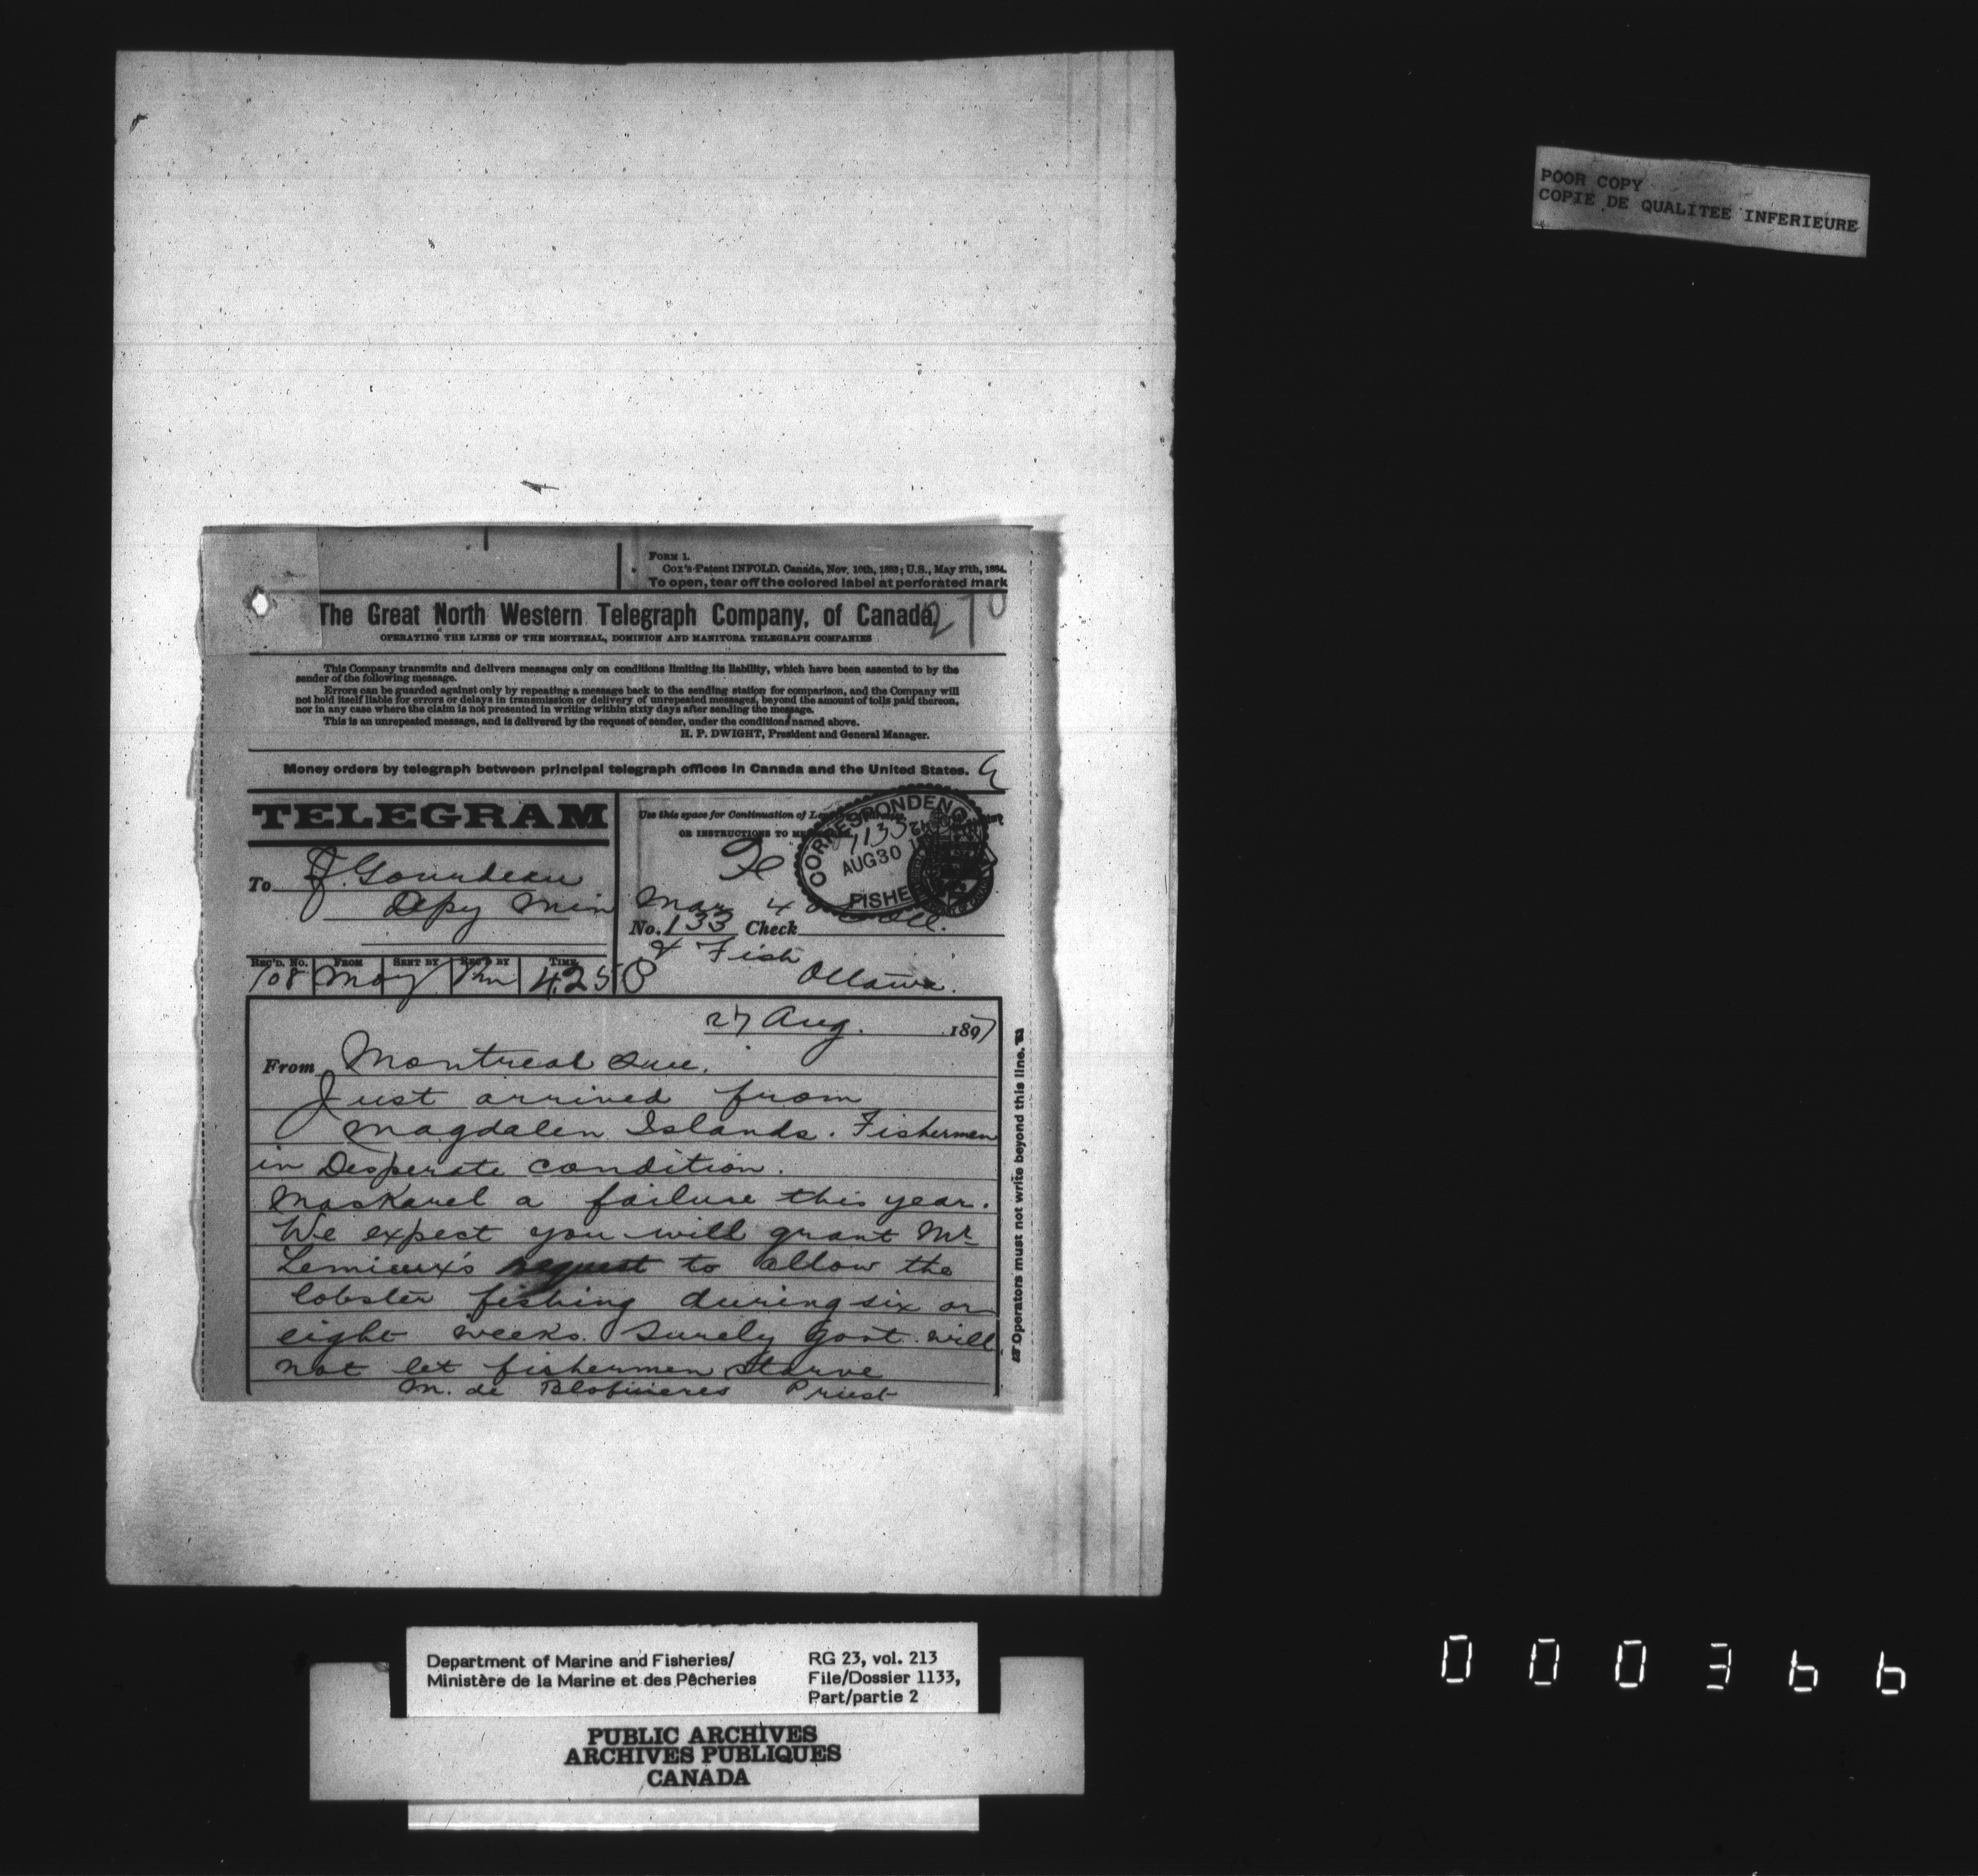 POOR COPY
COPIE DE QUALITEE INFERIEURE
FORM 1.
Cox's Patent INFOLD. Canada, Nov. 10th, 1883; U.S., May 27th, 1884.
To open, tear off the colored label at perforated mark
The Great North Western Telegraph Company, of Canada,
270
OPERATING THE LINES OF THE MONTREAL, DOMINION AND MANITOBA TELEGRAPH COMPANIES
This Company transmits and delivers messages only on conditions limiting its liability, which have been assented to by the
sender of the following message.
Errors can be guarded against only by repeating a message back to the sending station for comparison, and the Company will
not hold itself liable for errors or delays in transmission or delivery of unrepeated messages, beyond the amount of tolls paid thereon,
nor in any case where the claim is not presented in writing within sixty days after sending the message.
This is an unrepeated message, and is delivered by the request of sender, under the conditions named above.
H. P. DWIGHT, President and General Manager.
Money orders by telegraph between principal telegraph offices in Canada and the United States.
TELEGRAM
Use this space for Continuation of
OR INSTRUCTIONS TO
CORRESPONDENCE
AUG 30
FISHE
To F. Gourdeau
Depy Min Mar
No. 133 Check
& Fish
Ottawa.
REC'D. No. FROM SENT BY REC'D BY TIME
108 4.25
27 Aug. 1897
From Montreal Que.
Just arrived from
Magdalen Islands. Fishermen
in Desperate condition.
Maskarel a failure this year.
We expect you will grant Mr
Lemieux's request to allow the
lobster fishing during six or
eight weeks. Surely Govt will
not let fishermen starve
M. de Priest
Operators must not write beyond this line.
Department of Marine and Fisheries/
Ministère de la Marine et des Pêcheries
RG 23, vol. 213
File/Dossier 1133,
Part/partie 2
PUBLIC ARCHIVES
ARCHIVES PUBLIQUES
CANADA
000366